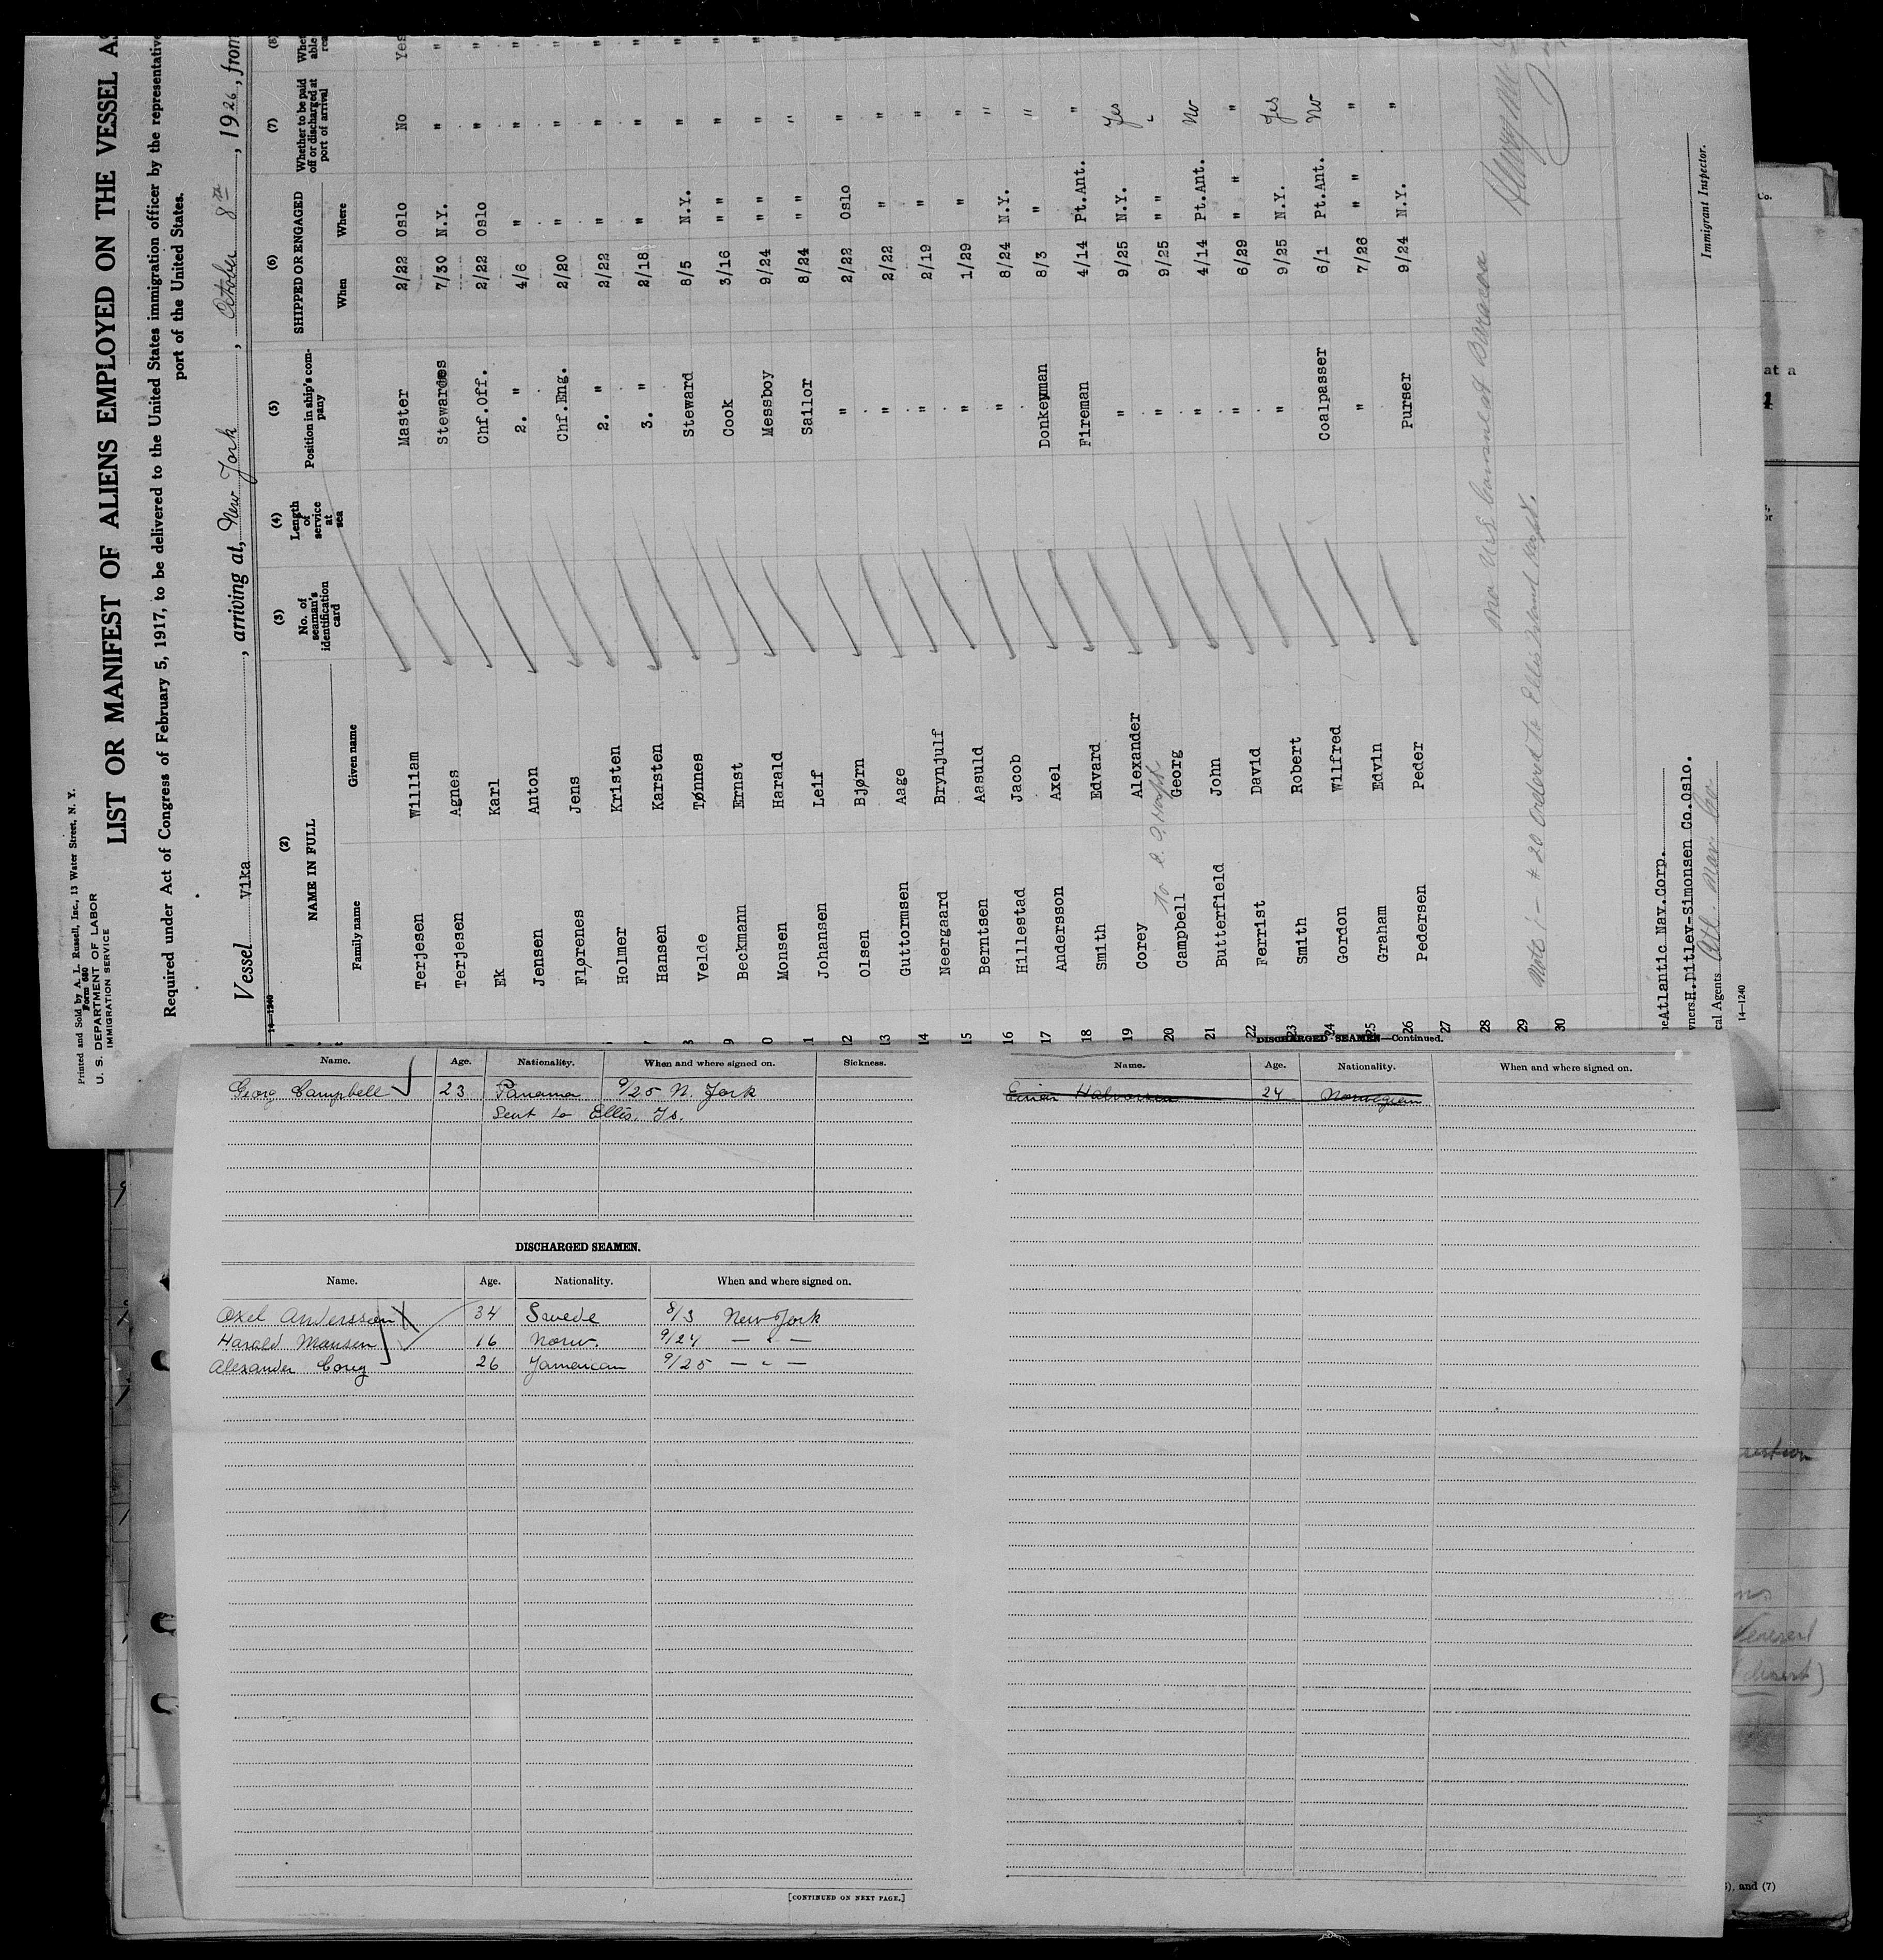 Printed and Sold by A. L. Russell, Inc., 13 Water Street, N. Y.
Form 680
U. S. DEPARTMENT OF LABOR
IMMIGRATION SERVICE
LIST OR MANIFEST OF ALIENS EMPLOYED ON THE VESSEL AS
Required under Act of Congress of February 5, 1917, to be delivered to the United States immigration officer by the representative
port of the United States.
Vessel Vika, arriving at, New York, October 8th, 1926, from
14-1240
(2) (3) (4) (5) (6) (7) (8)
NAME IN FULL No. of seaman's identification card Length of service at sea Position in ship's company SHIPPED OR ENGAGED Whether to be paid off or discharged at port of arrival
Family name Given name When Where
Terjesen William Master 2/22 Oslo No Yes
Terjesen Agnes Stewardes 7/30 N.Y. " "
Ek Karl Chf.Off. 2/22 Oslo " "
Jensen Anton 2. " 4/6 " " "
Flørenes Jens Chf.Eng. 2/20 " " "
Holmer Kristen 2. " 2/22 " " "
Hansen Karsten 3. " 2/18 " " "
8 Velde Tønnes Steward 8/5 N.Y. " "
9 Beckmann Ernst Cook 3/16 " " " "
0 Monsen Harald Messboy 9/24 " " " "
1 Johansen Leif Sailor 8/24 " " " "
12 Olsen Bjørn " 2/22 Oslo "
13 Guttormsen Aage " 2/22 " "
14 Neergaard Brynjulf " 2/19 " "
15 Berntsen Aasuld " 1/29 " "
16 Hillestad Jacob " 8/24 N.Y. "
17 Andersson Axel Donkeyman 8/3 " "
18 Smith Edvard Fireman 4/14 Pt.Ant. "
19 Corey Alexander " 9/25 N.Y. Yes
20 Campbell Georg " 9/25 " " "
21 Butterfield John " 4/14 Pt.Ant. No
22 Ferrist David " 6/29 " " "
23 Smith Robert " 9/25 N.Y. Yes
24 Gordon Wilfred Coalpasser 6/1 Pt.Ant. No
25 Graham Edvin " 7/26 " " "
26 Pedersen Peder Purser 9/24 N.Y. "
27
28
29
30
Note:- # 20 ordered to Ellis Island
Immigrant Inspector.
Atlantic Nav.Corp.
wners H.Ditlev-Simonsen Co.Oslo.
cal Agents
14-1240
Name. Age. Nationality. When and where signed on. Sickness.
Georg Campbell 23 Panama 9/25 N. York
Sent to Ellis. Is.
DISCHARGED SEAMEN.
Name. Age. Nationality. When and where signed on.
Axel Anderssen 34 Swede 8/3 New York
Harald Mansen 16 Norw. 9/24 — " —
Alexander Corey 26 Jamaican 9/25 — " —
[CONTINUED ON NEXT PAGE.]
DISCHARGED SEAMEN—Continued.
Name. Age. Nationality. When and where signed on.
Einar Halvorsen 24 Norwegian
at a
), and (7)